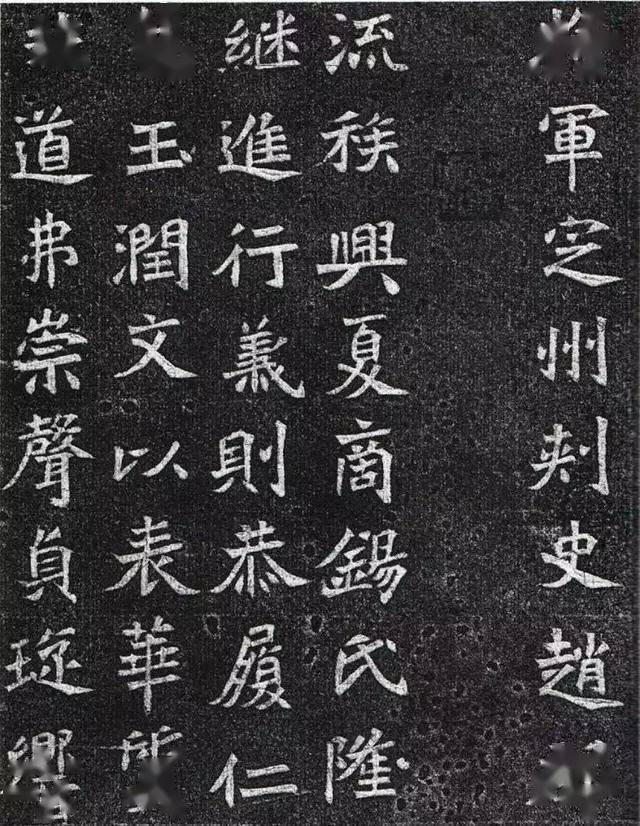 軍定州刾史趙
流秩興夏商錫氏隆
継進行義則恭履仁
玉潤文以表華所
道弗崇聲貞珎響